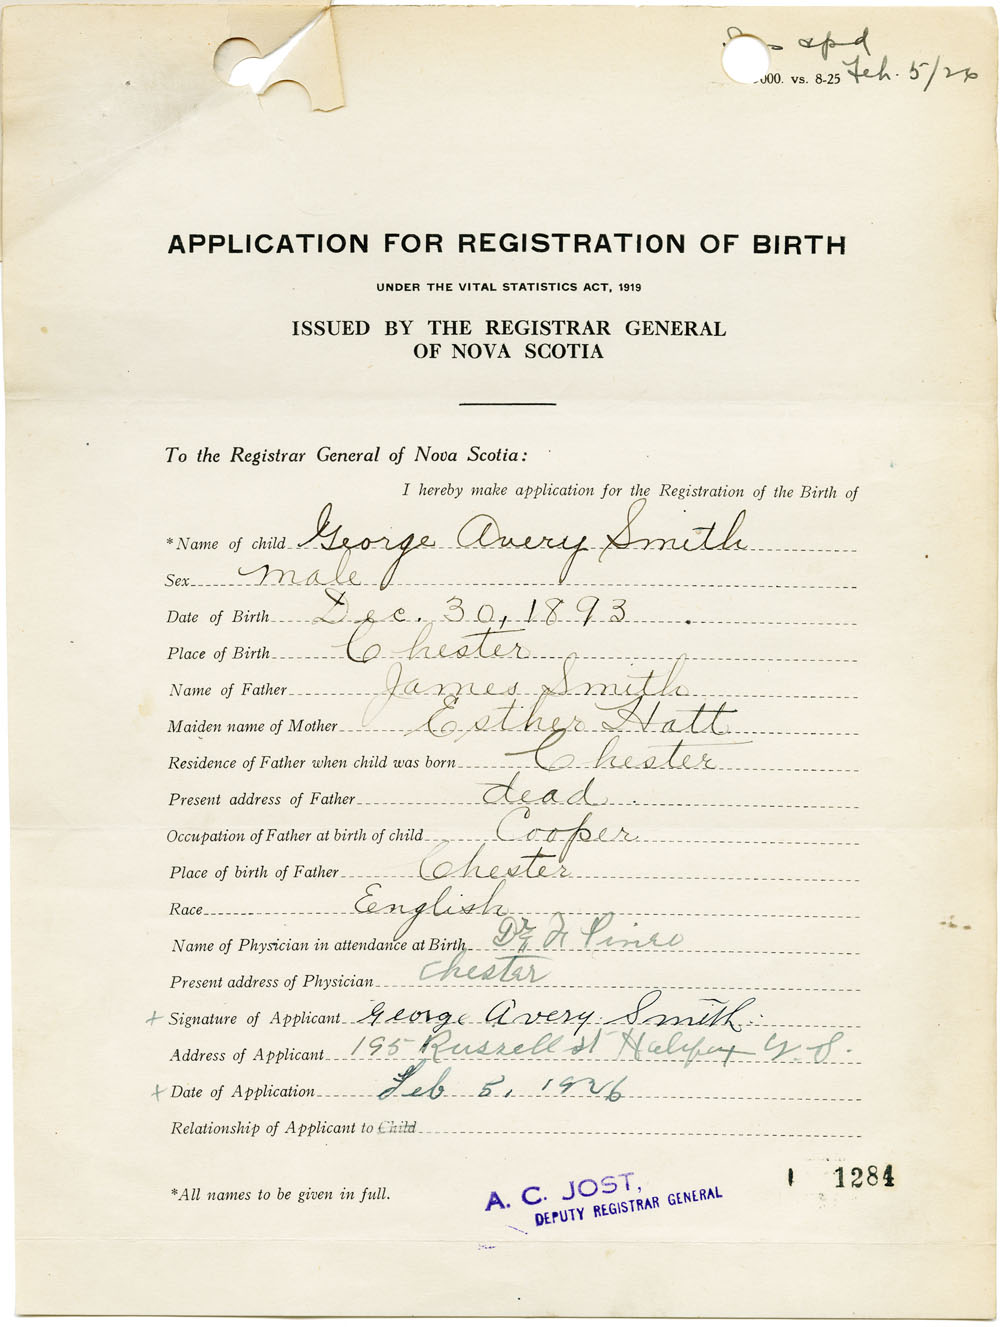 apd
000. vs. 8-25 Feb. 5/26
APPLICATION FOR REGISTRATION OF BIRTH
UNDER THE VITAL STATISTICS ACT, 1919
ISSUED BY THE REGISTRAR GENERAL
OF NOVA SCOTIA
To the Registrar General of Nova Scotia:
I hereby make application for the Registration of the Birth of
*Name of child George Avery Smith
Sex male
Date of Birth Dec. 30, 1893
Place of Birth Chester
Name of Father James Smith
Maiden name of Mother Esther Hatt
Residence of Father when child was born Chester
Present address of Father dead
Occupation of Father at birth of child Cooper
Place of birth of Father Chester
Race English
Name of Physician in attendance at Birth Dr
Present address of Physician Chester
+ Signature of Applicant George Avery Smith
Address of Applicant 195 Russell st Halifax N. S.
+ Date of Application Feb 5, 1926
Relationship of Applicant to Child
1 1284
*All names to be given in full.
A. C. JOST,
DEPUTY REGISTRAR GENERAL